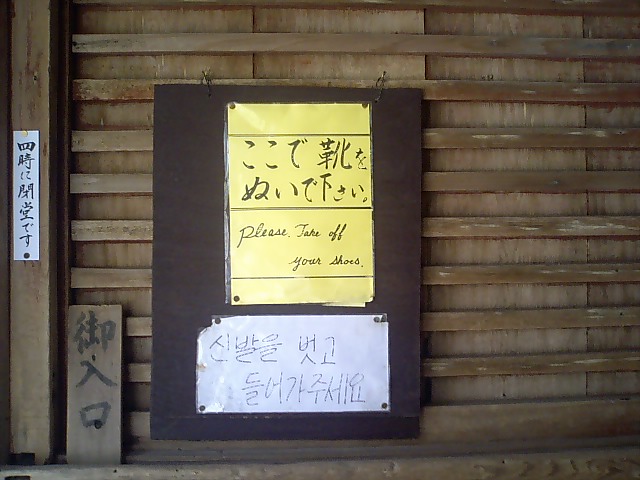 四時に閉堂です。
御入口
ここで靴を
ぬいで下さい。
Please. Take off
your shoes.
신발을 벗고
들어가주세요